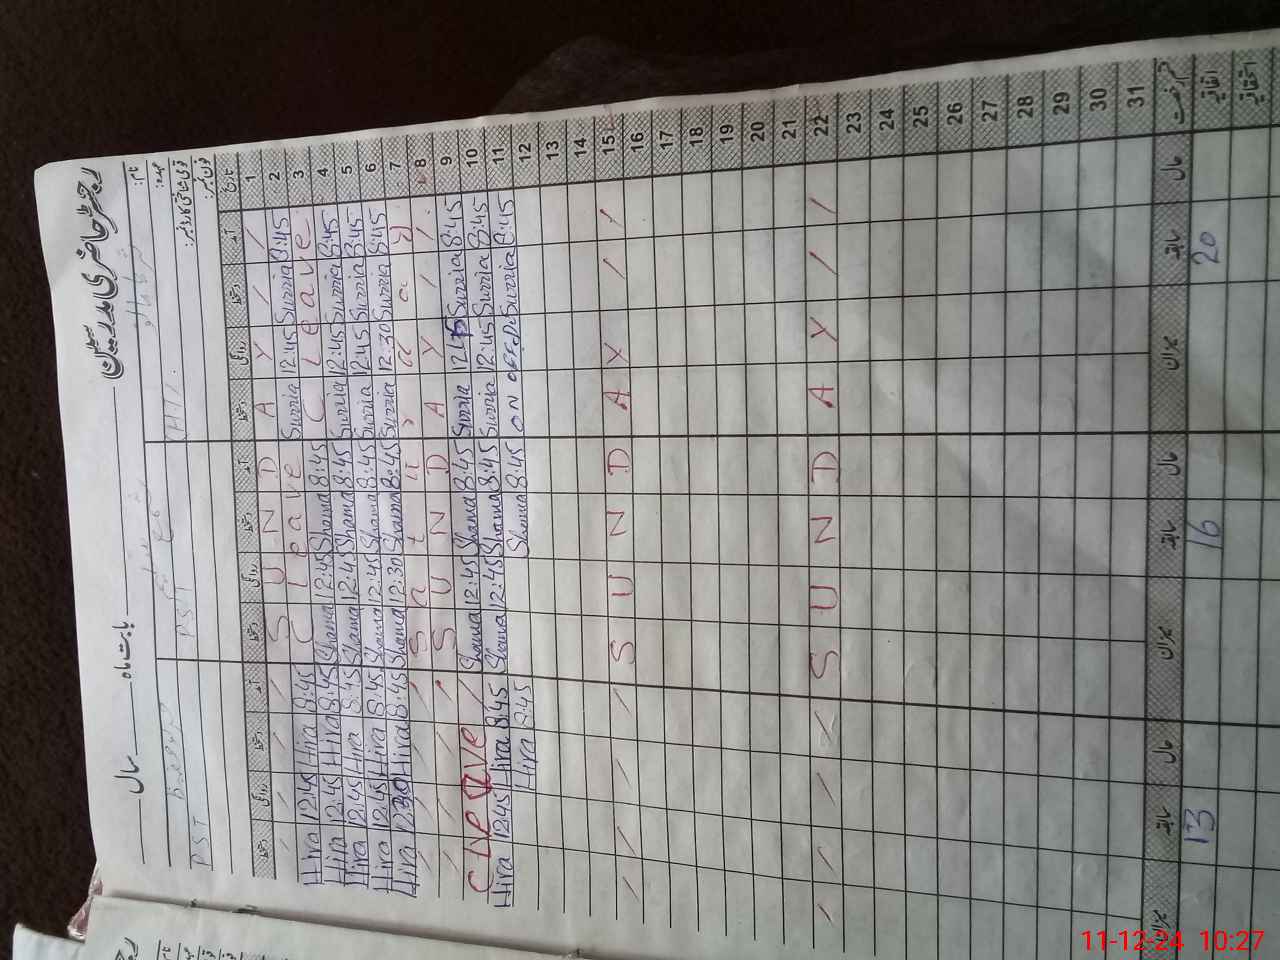 رجسٹر حاضری مدرسین بابت ماہ سال
نام:
عہدہ:
قومی شناختی کارڈ نمبر:
فون نمبر:
PST PST H.T
تاریخ آمد دستخط روانگی دستخط آمد دستخط روانگی دستخط آمد دستخط روانگی دستخط
S U N D A Y / / 1
Hira 12:45 Hira 8:45 C leave Surria 12:45 Surria 8:45 2
Hira 12:45 Hira 8:45 Shama 12:45 Shama 8:45 C Leave 3
Hira 12:45 Hira 8:45 Shama 12:45 Shama 8:45 Surria 12:45 Surria 8:45 4
Hira 12:45 Hira 8:45 Shama 12:45 Shama 8:45 Surria 12:45 Surria 8:45 5
Hira 12:30 Hira 8:45 Shama 12:30 Shama 8:45 Surria 12:30 Surria 8:45 6
S a t u r d a y 7
S U N D A Y / / 8
C lve Shama 12:45 Shama 8:45 Surria 12:45 Surria 8:45 9
Hira 12:45 Hira 8:45 Shama 12:45 Shama 8:45 Surria 12:45 Surria 8:45 10
Hira 8:45 Shama 8:45 ON Surria 8:45 11
12
13
14
S U N D A Y / / 15
16
17
18
19
20
21
S U N D A Y / / 22
23
24
25
26
27
28
29
30
31
قسم رخصت حال سابقہ میزان حال سابقہ میزان حال سابقہ میزان
اتفاقیہ 20 16 13
استحقاقیہ
11-12-24 10:27